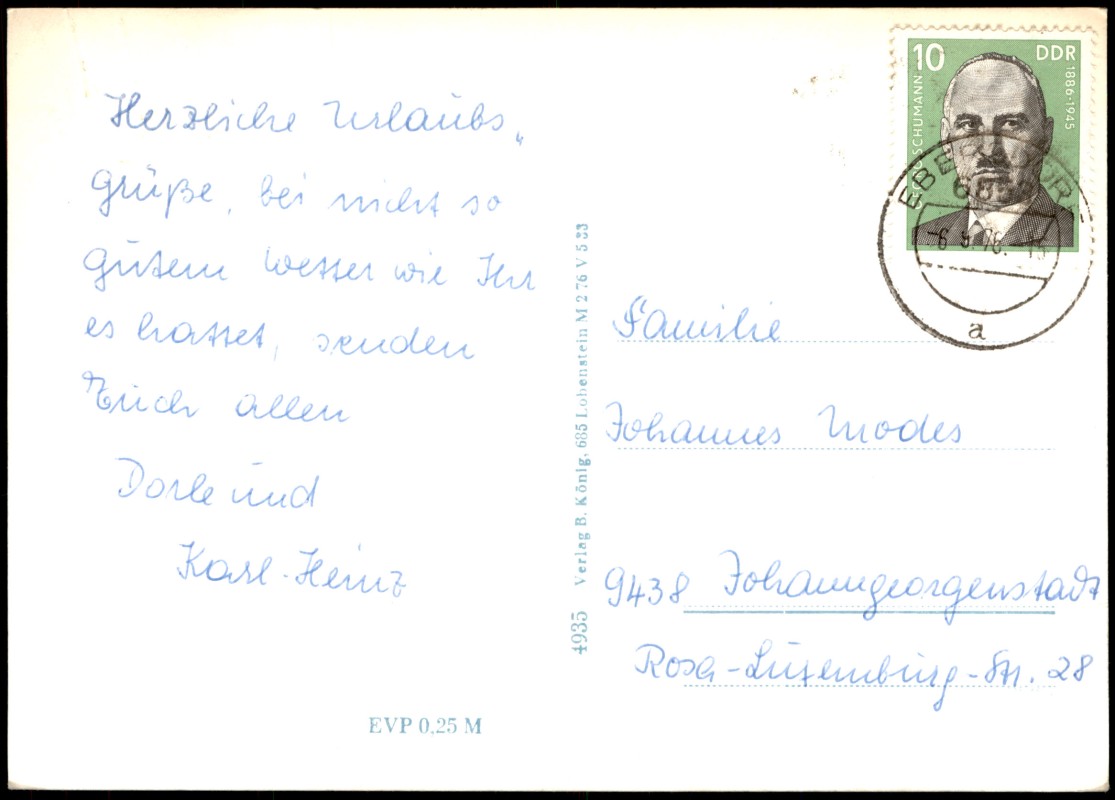 Herzliche Urlaubs„
grüße, bei nicht so
gutem Wetter wie Ihr
es hattet, senden
Euch allen
Dorle und
Karl-Heinz
EVP 0,25 M
4935 Verlag B. König, 685 Lobenstein M 276 V 5 33
10 DDR
SCHUMANN
1886-1945
a
Familie
Johannes Modes
9438 Johanngeorgenstadt
Rosa-Luxemburg-Str. 28